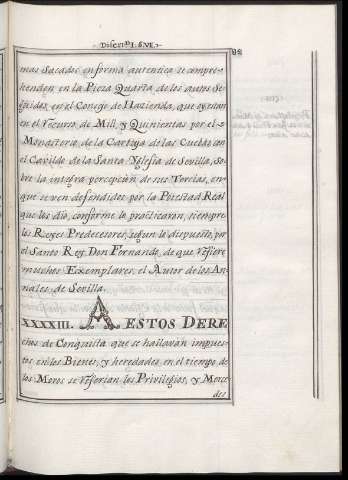 Discurso I. §. VI.
mas Sacados en forma autentica se compre-
henden en la Pieza Quarta de los autos Se-
guidos en el Consejo de Hazienda, que existen
en el recurso de Mill, y Quinientas por el
Monasterio de la Cartuja de las Cuebas con
el Cavildo de la Santa Yglesia de Sevilla, So-
bre la integra percepcion de sus Tercias, en
que se ven defendidos por la Potestad Real
que los dio, conforme lo practicaron, siempre
los Reyes Predecesores, segun lo dispuesto, por
el Santo Rey Don Fernando, de que refiere
muchos Exemplares, el Autor de los An-
nales de Sevilla.
XXXXIII. A ESTOS DERE
chos de Conquista que se hallavan impues-
tos en los Bienes, y heredades en el tiempo de
los Moros se reserian los Privilegios, y Merce
des